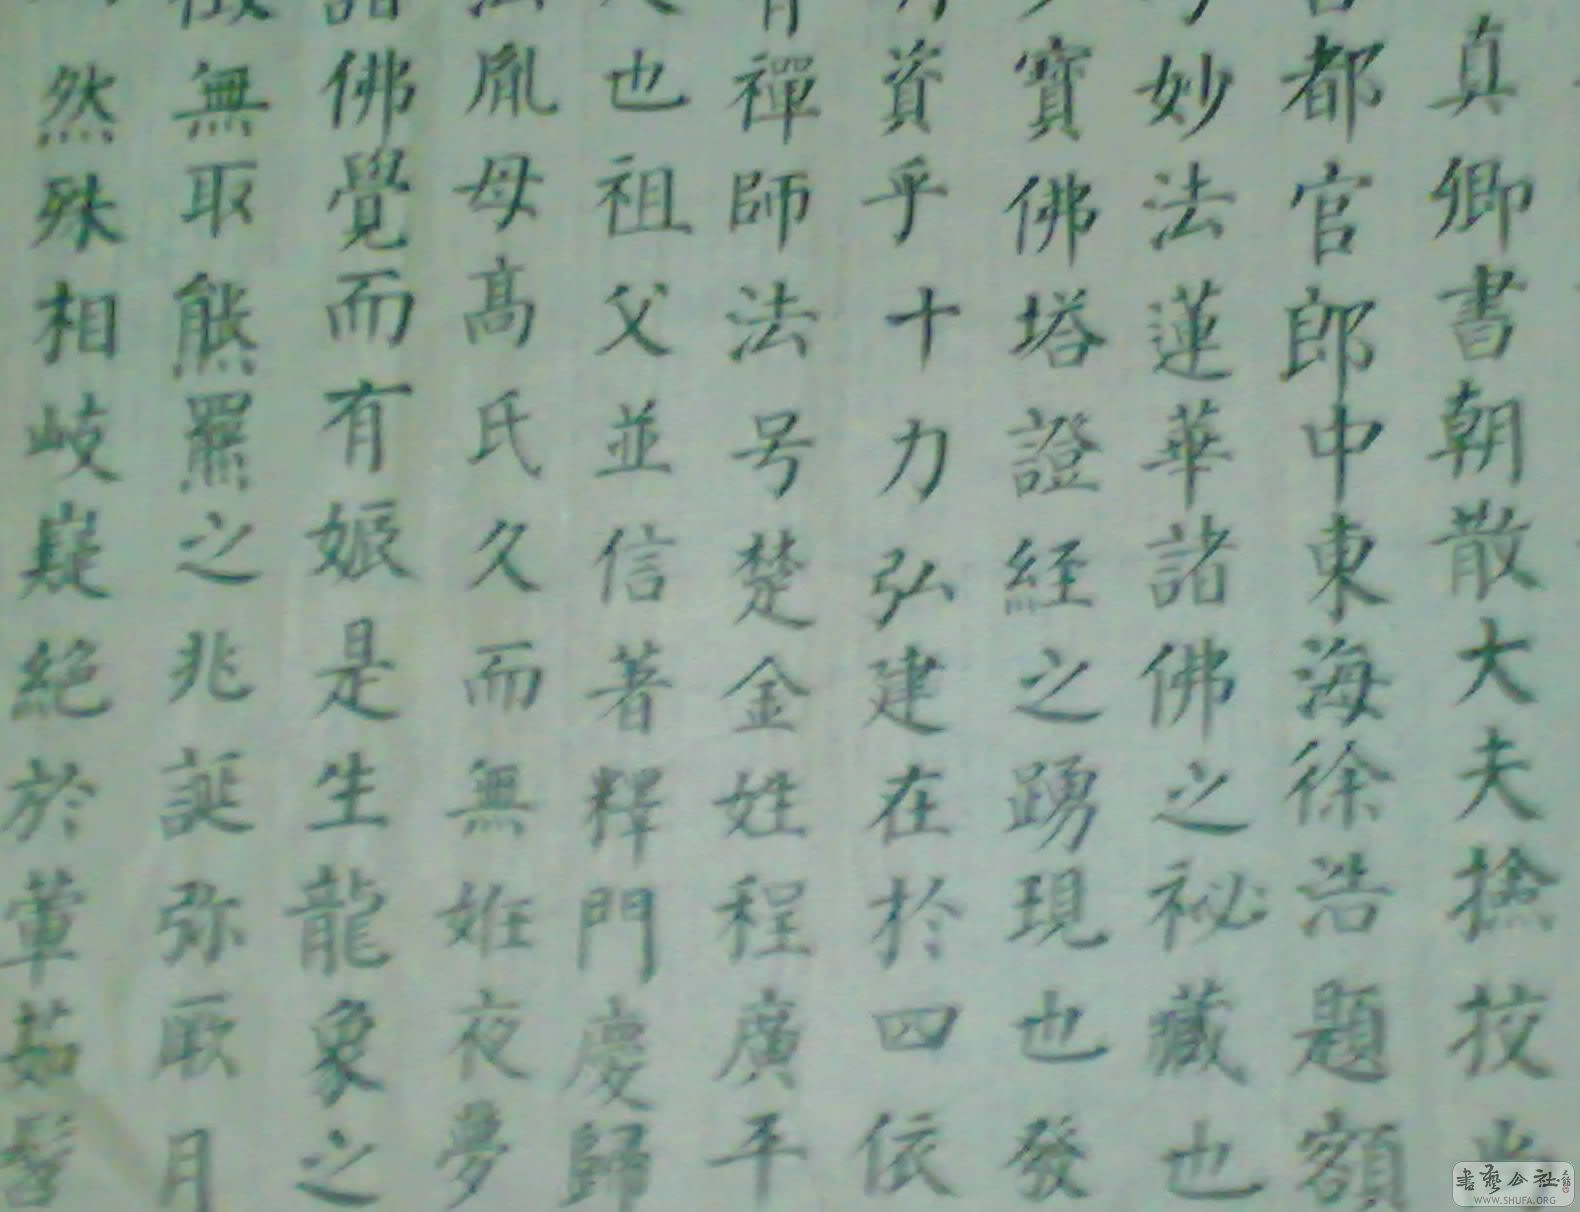 真卿書朝散大夫撿挍尚
都官郎中東海徐浩題額
妙法蓮華諸佛之祕藏也
寶佛塔證經之踴現也發
資乎十力弘建在於四依
禪師法号楚金姓程廣平
也祖父並信著釋門慶歸
胤母高氏久而無姙夜夢
諸佛覺而有娠是生龍象之
無取熊羆之兆誕弥厥月
然殊相岐嶷絕於葷茹髫
書藝公社
WWW.SHUFA.ORG